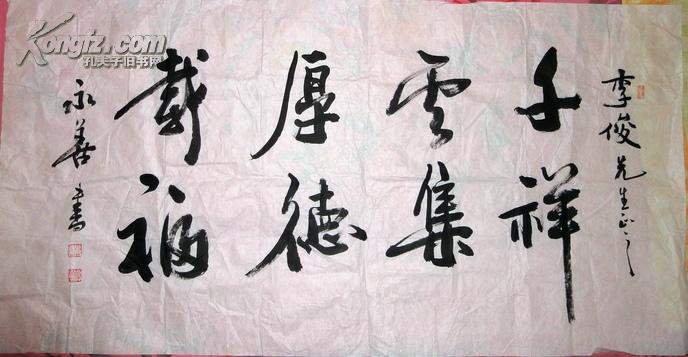 李俊先生正之
千祥
云集
厚德
载福
永善书
Kongfz.com
孔夫子旧书网